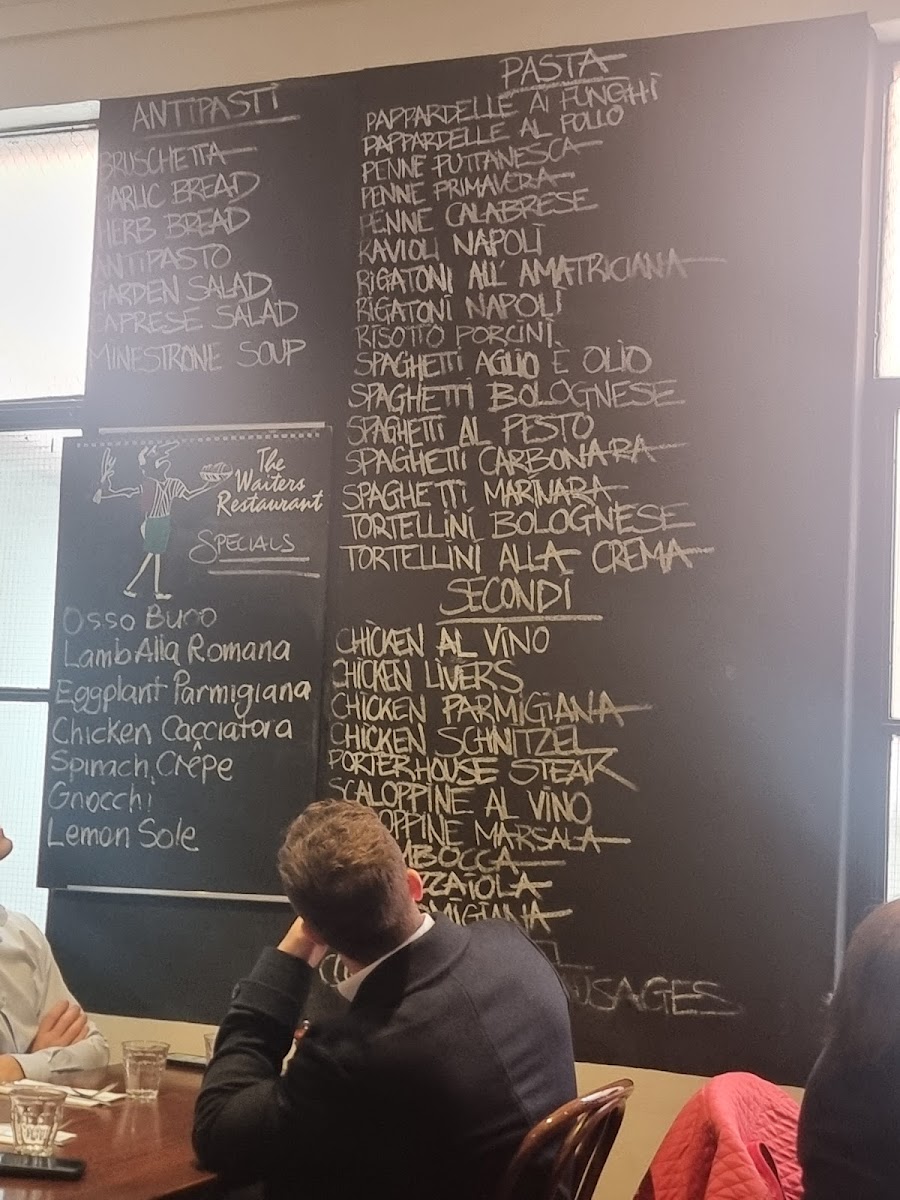 ANTIPASTI
BRUSCHETTA
GARLIC BREAD
HERB BREAD
ANTIPASTO
GARDEN SALAD
CAPRESE SALAD
MINESTRONE SOUP
The
Waiters
Restaurant
SPECIALS
Osso Buco
Lamb Alla Romana
Eggplant Parmigiana
Chicken Cacciatora
Spinach Crêpe
Gnocchi
Lemon Sole
PASTA
PAPPARDELLE AI FUNGHI
PAPPARDELLE AL POLLO
PENNE PUTTANESCA
PENNE PRIMAVERA
PENNE CALABRESE
RAVIOLI NAPOLI
RIGATONI ALL' AMATRICIANA
RIGATONI NAPOLI
RISOTTO PORCINI
SPAGHETTI AGLIO E OLIO
SPAGHETTI BOLOGNESE
SPAGHETTI AL PESTO
SPAGHETTI CARBONARA
SPAGHETTI MARINARA
TORTELLINI BOLOGNESE
TORTELLINI ALLA CREMA
SECONDI
CHICKEN AL VINO
CHICKEN LIVERS
CHICKEN PARMIGIANA
CHICKEN SCHNITZEL
PORTERHOUSE STEAK
SCALOPPINE AL VINO
OPPINE MARSALA
MBOCCA
ZZAIOLA
MIGIANA
USAGES